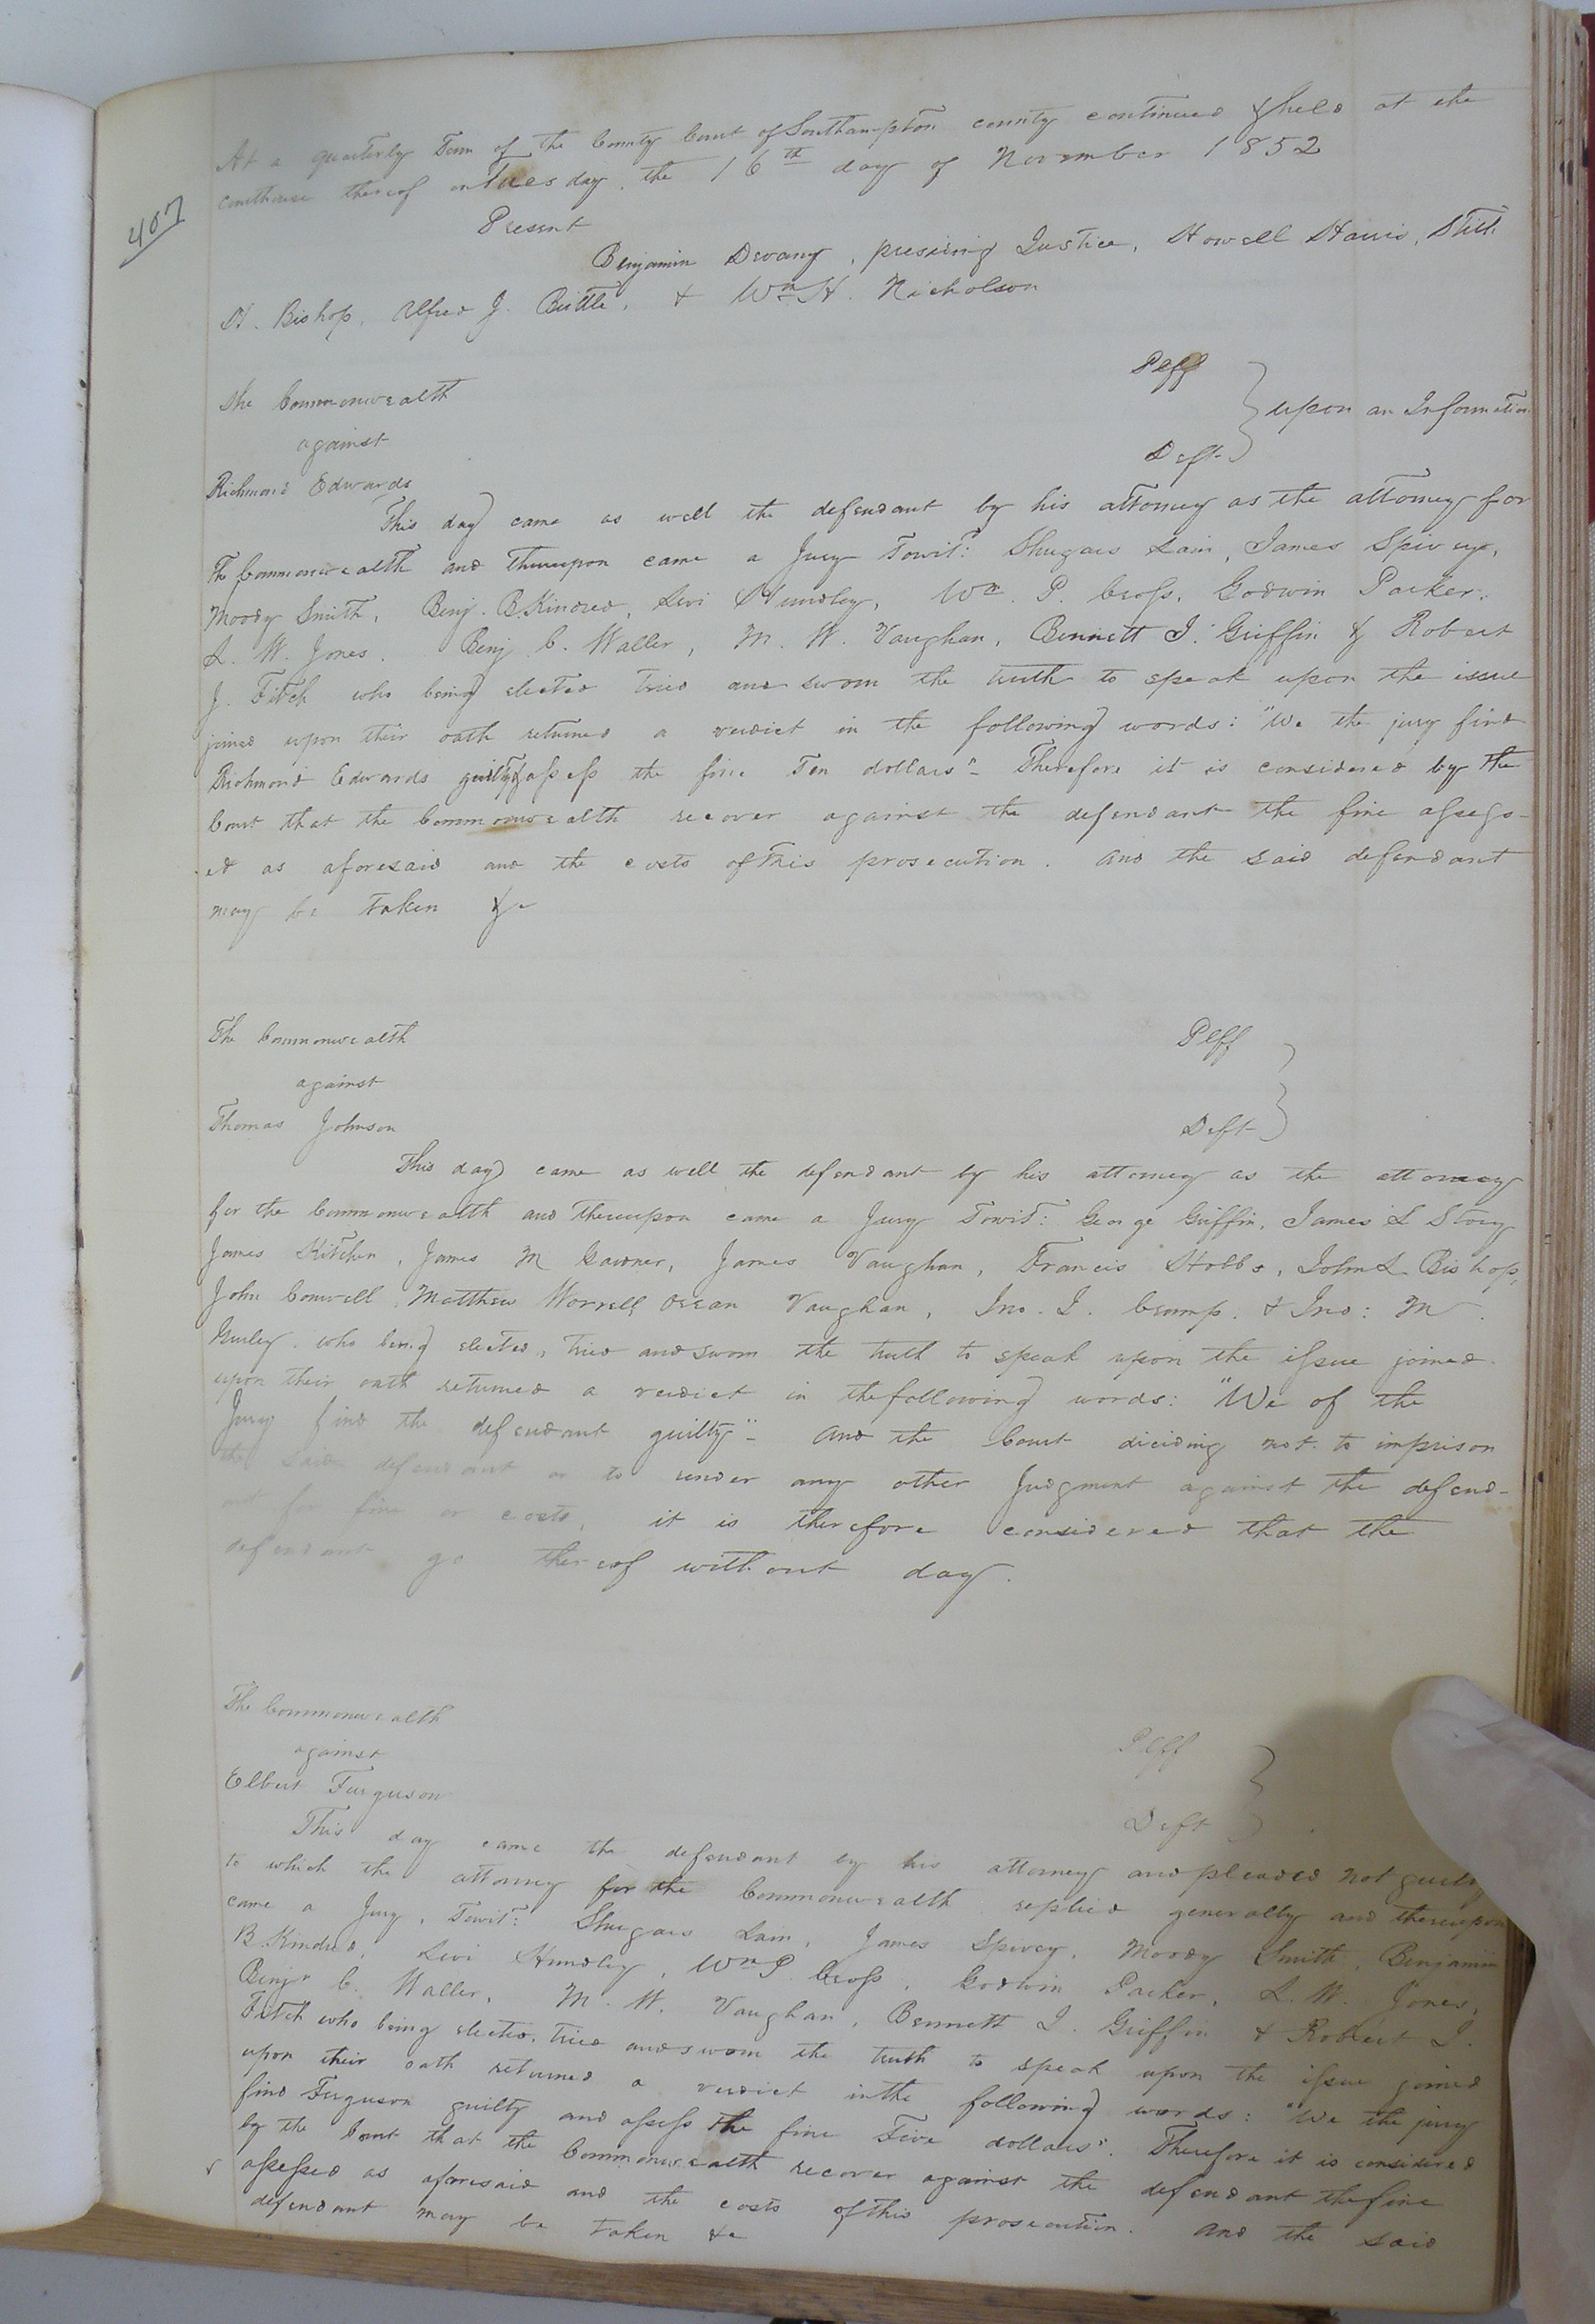 407
At a quarterly Term of the County Court of Southampton county continued & held at the
courthouse thereof on Tuesday, the 16th day of November 1852
Present
Benjamin Devany, presiding Justice, Howell Harris, Stith
H. Bishop, Alfred J. Brittle, & Wm H. Nicholson
The Commonwealth Plff
against } upon an Information
Richmond Edwards Deft
This day came as well the defendant by his attorney as the attorney for
the Commonwealth and thereupon came a Jury Towit: Shugars Lain, James Spivey,
Moody Smith, Benj. B. Kindred, Levi Hundley, Wm. P. Cross, Godwin Parker,
L. W. Jones. Benj C. Waller, M. W. Vaughan, Bennett J. Griffin & Robert
J. Fitch who being elected tried and sworn the truth to speak upon the issue
joined upon their oath returned a verdict in the following words: "We the jury find
Richmond Edwards guilty & assess the fine Ten dollars" - Therefore it is considered by the
Court that the Commonwealth recover against the defendant the fine assess-
ed as aforesaid and the costs of this prosecution. And the said defendant
may be taken &c
The Commonwealth Plff
against }
Thomas Johnson Deft
This day came as well the defendant by his attorney as the attorney
for the Commonwealth and thereupon came a Jury Towit: George Griffin, James L Story
James Kitchen, James M Gardner, James Vaughan, Francis Stobbs, John L Bishop,
John Conwell, Matthew Worrell Ocean Vaughan, Jno. J. Crump. & Jno: M.
Gurley. who being elected, tried and sworn the truth to speak upon the issue joined.
upon their oath returned a verdict in the following words: "We of the
Jury find the defendant guilty" - And the Court deciding not to imprison
the said defendant or to render any other Judgment against the defend-
ant for fine or costs, it is therefore considered that the
defendant go thereof without day.
The Commonwealth Plff
against }
Elbert Ferguson Deft
This day came the defendant by his attorney and pleaded not guilty
to which the attorney for the Commonwealth replied generally and thereupon
came a Jury, Towit: Shugars Lain, James Spivey, Moody Smith, Benjamin
B. Kindred, Levi Hundley, Wm P. Cross, Godwin Parker, L. W. Jones,
Benjn C. Waller, M. W. Vaughan, Bennett J. Griffin & Robert J.
Fitch who being elected, tried and sworn the truth to speak upon the issue joined
upon their oath returned a verdict in the following words: "We the jury
find Ferguson guilty and assess the fine Five dollars". Therefore it is considered
by the Court that the Commonwealth recover against the defendant the fine
assessed as aforesaid and the costs of this prosecution. And the said
defendant may be taken &c